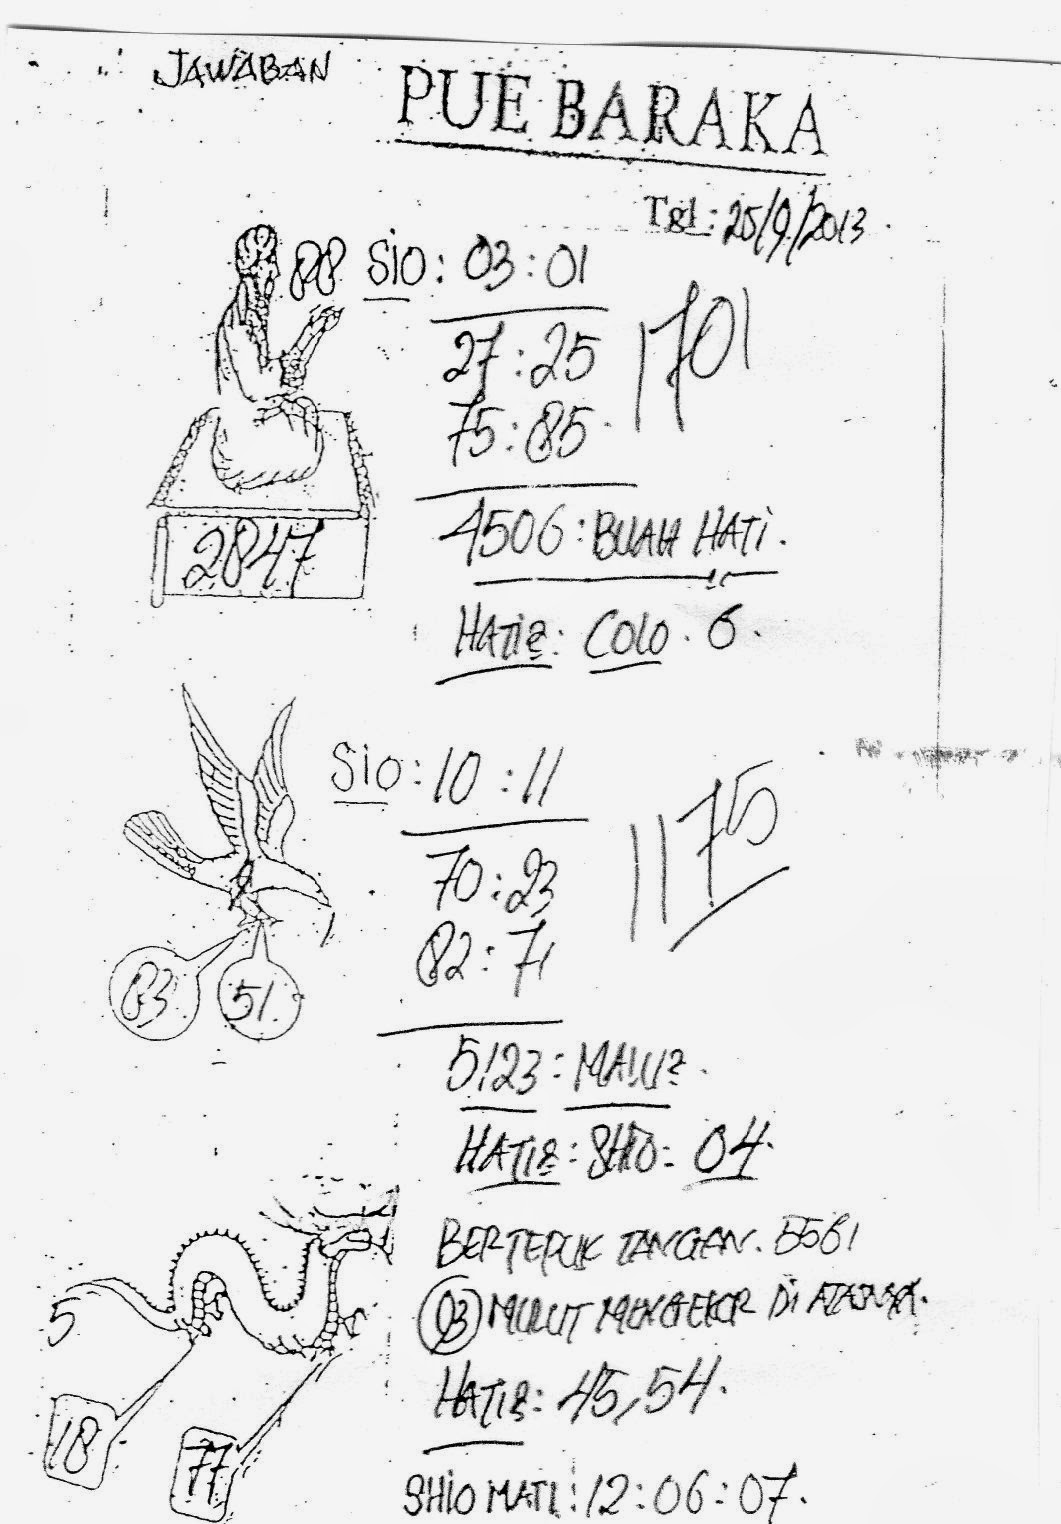 JAWABAN
PUE BARAKA
Tgl: 25/9/2013
88 SIO: 03:01
27:25
75:85
1701
2847
4506: BUAH HATI.
HATI2: COLO. 6.
SIO: 10:11
70:23
82:71
1175
83 51
5123: MALU2.
HATI2: SHIO: 04.
BERTEPUK TANGAN. 5561
03 MULUT DI ATASNYA.
5
HATI2: 45,54.
18
77
SHIO MATI: 12:06:07.